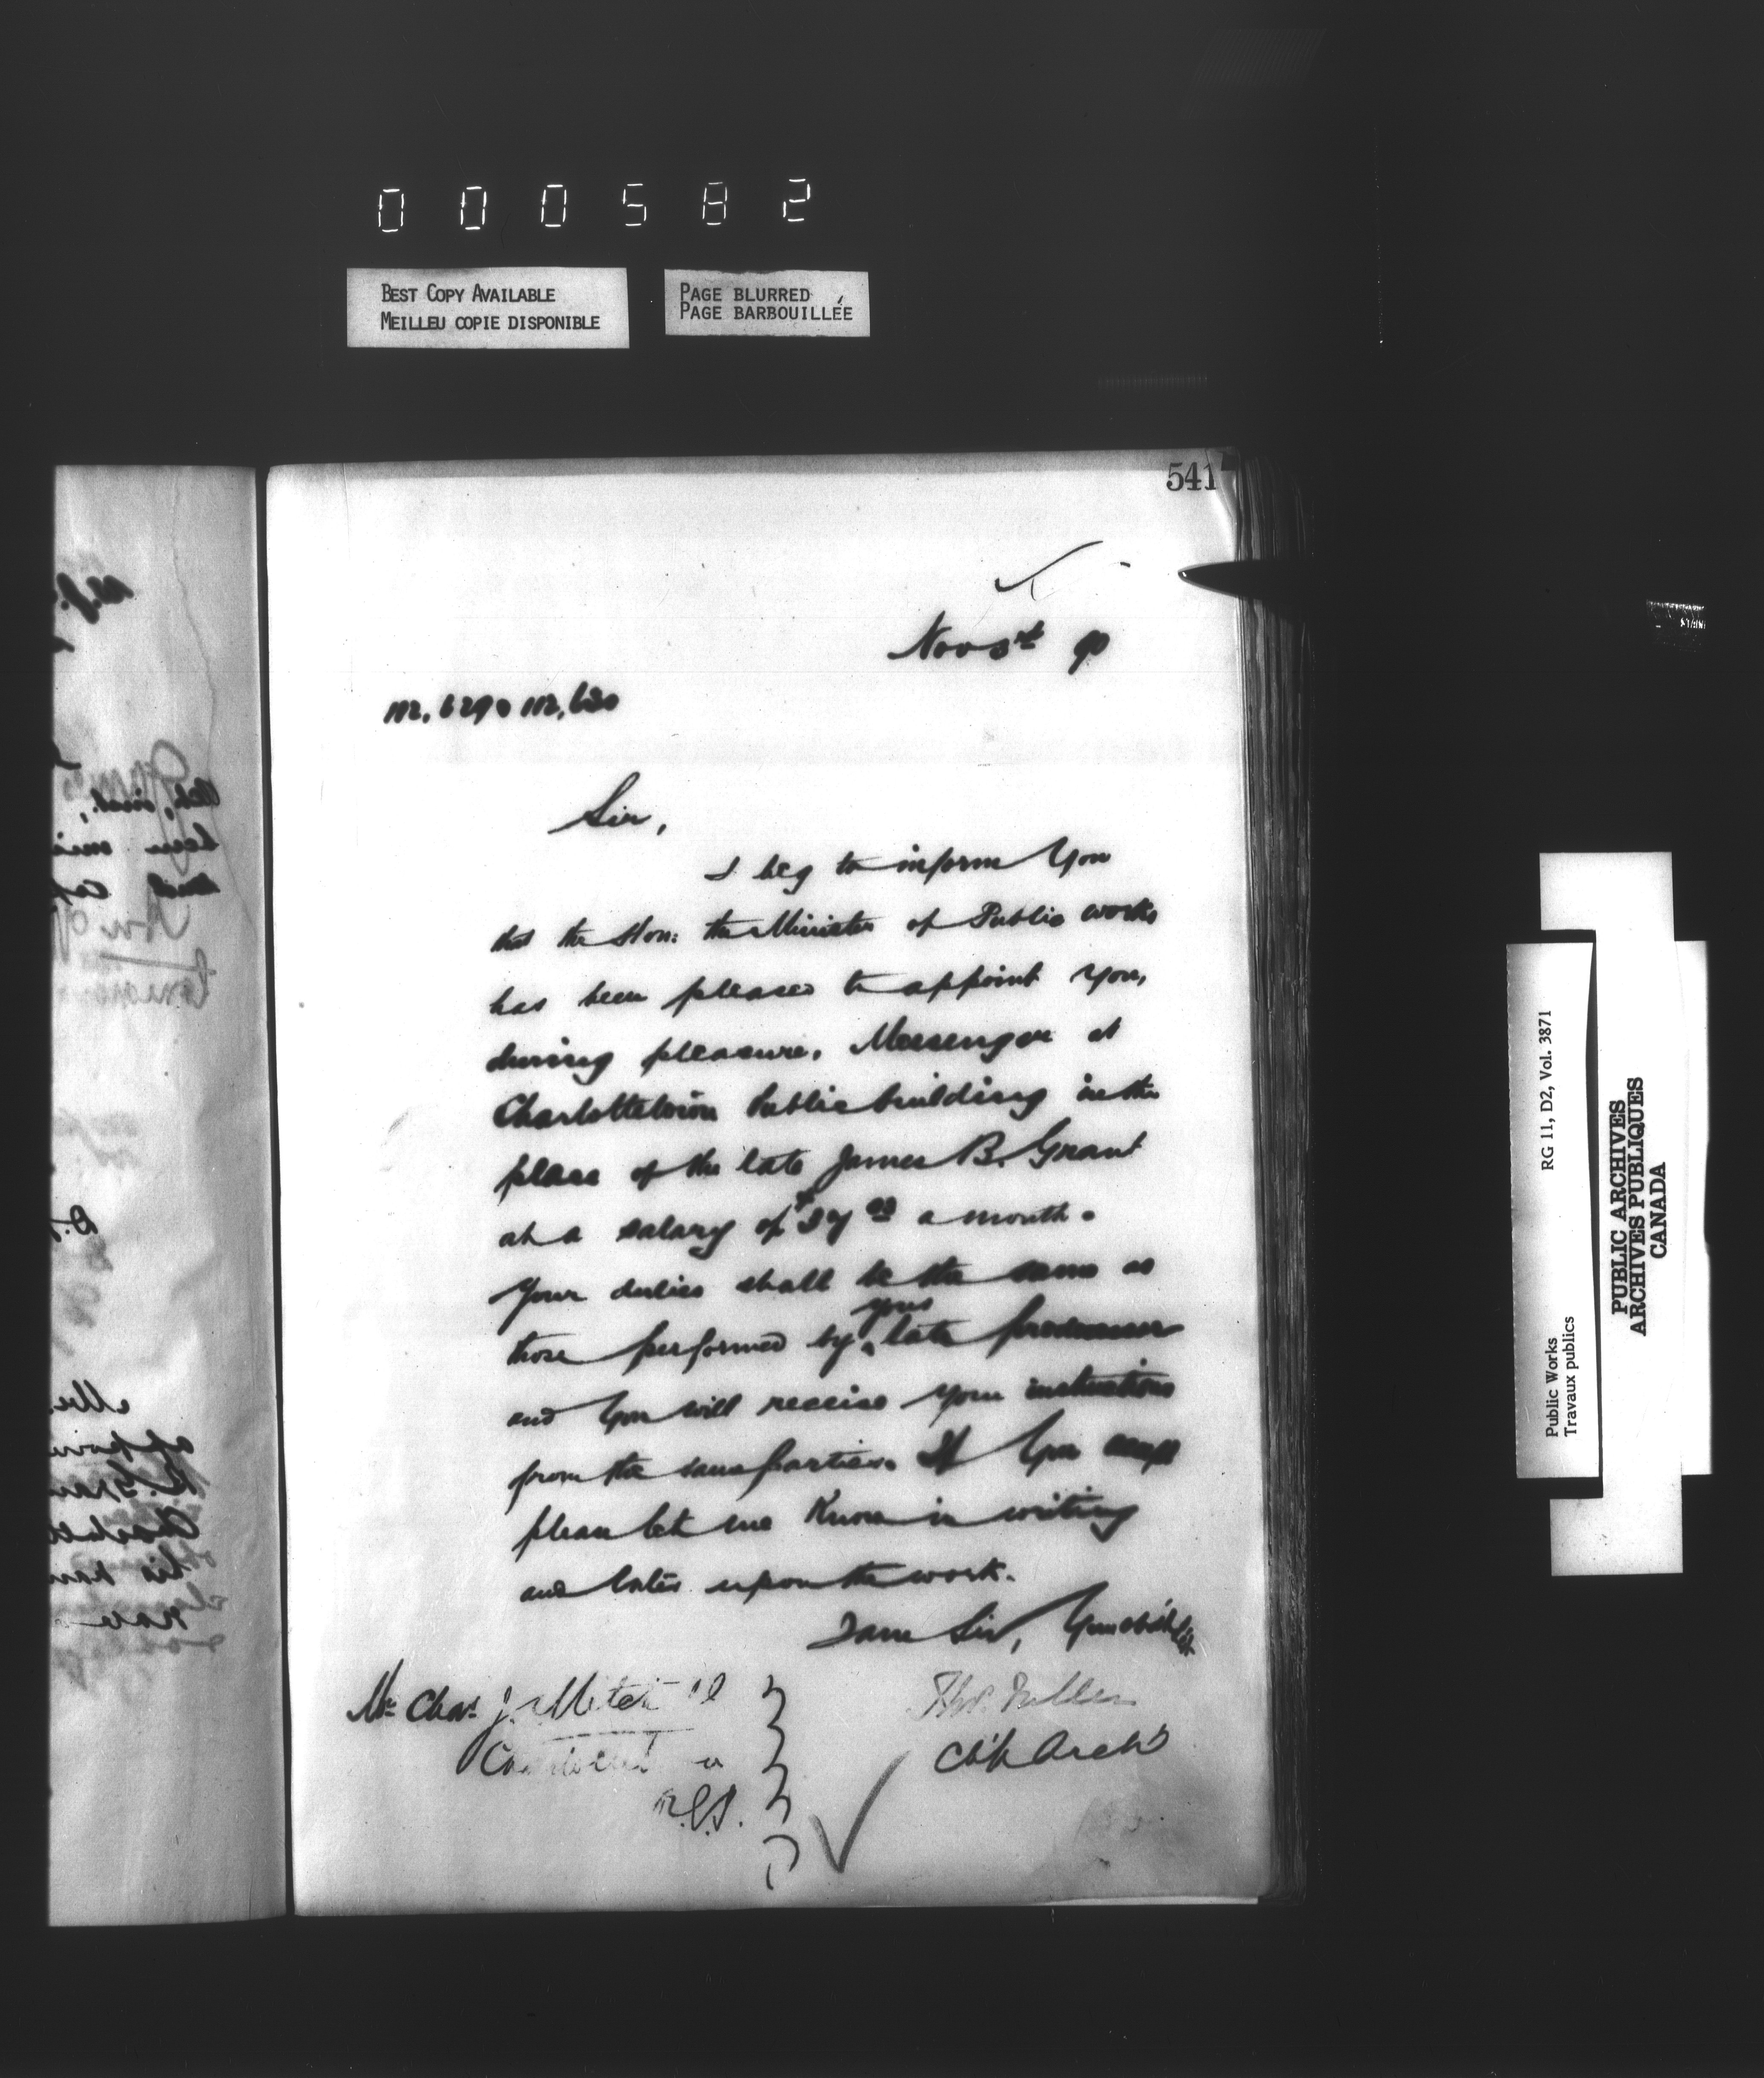 000582
BEST COPY AVAILABLE
MEILLEU COPIE DISPONIBLE
PAGE BLURRED
PAGE BARBOUILLÉE
541
Nov 90
112,629 & 112,630
Sir,
I beg to inform You
that the Hon: the Minister of Public works
has been pleased to appoint You,
during pleasure, Messenger at
Charlottetown Public building in the
place of the late James B. Grant
at a salary of a month.
Your duties shall be the same as
those performed by your late predecessor
and You will receive your instructions
from the same parties. If You accept
please let me Know in writing
and enter upon the work.
I am Sir, Your
Mr Chas J. Mitchell
Thos. Fuller
Charlottetown
Ch'f Arch't
P.E.I.
RG 11, D2, Vol. 3871
Public Works
Travaux publics
PUBLIC ARCHIVES
ARCHIVES PUBLIQUES
CANADA